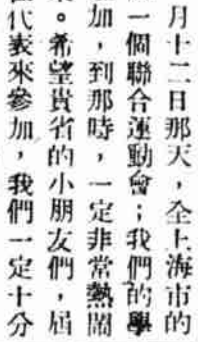 月十二日那天，全上海市的
一個聯合運動會；我們的學
加，到那時，一定非常熱鬧
。希望貴省的小朋友們，屆
代表來參加，我們一定十分